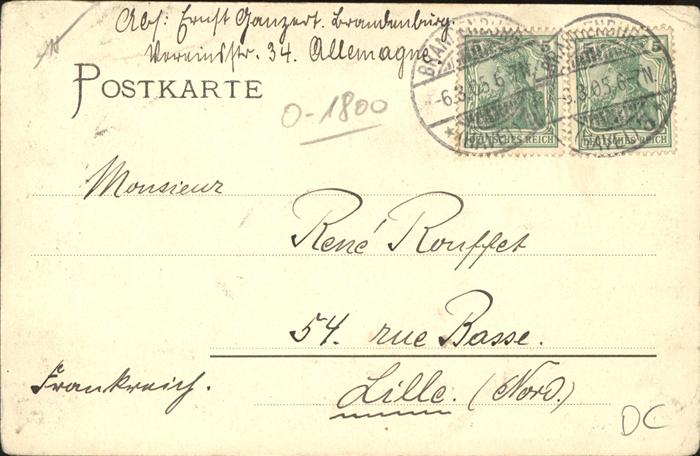 Abs: Ernst Ganzert. Brandenburg.
Vereinsstr. 34. Allemagne.
POSTKARTE
0-1800
BRANDENBURG
-6.3.05.6-7N.
*(HAVEL)
DEUTSCHES REICH
5
DEUTSCHES REICH
Monsieur
René Rouffet
54. rue Basse.
Frankreich.
Lille. (Nord.)
DC